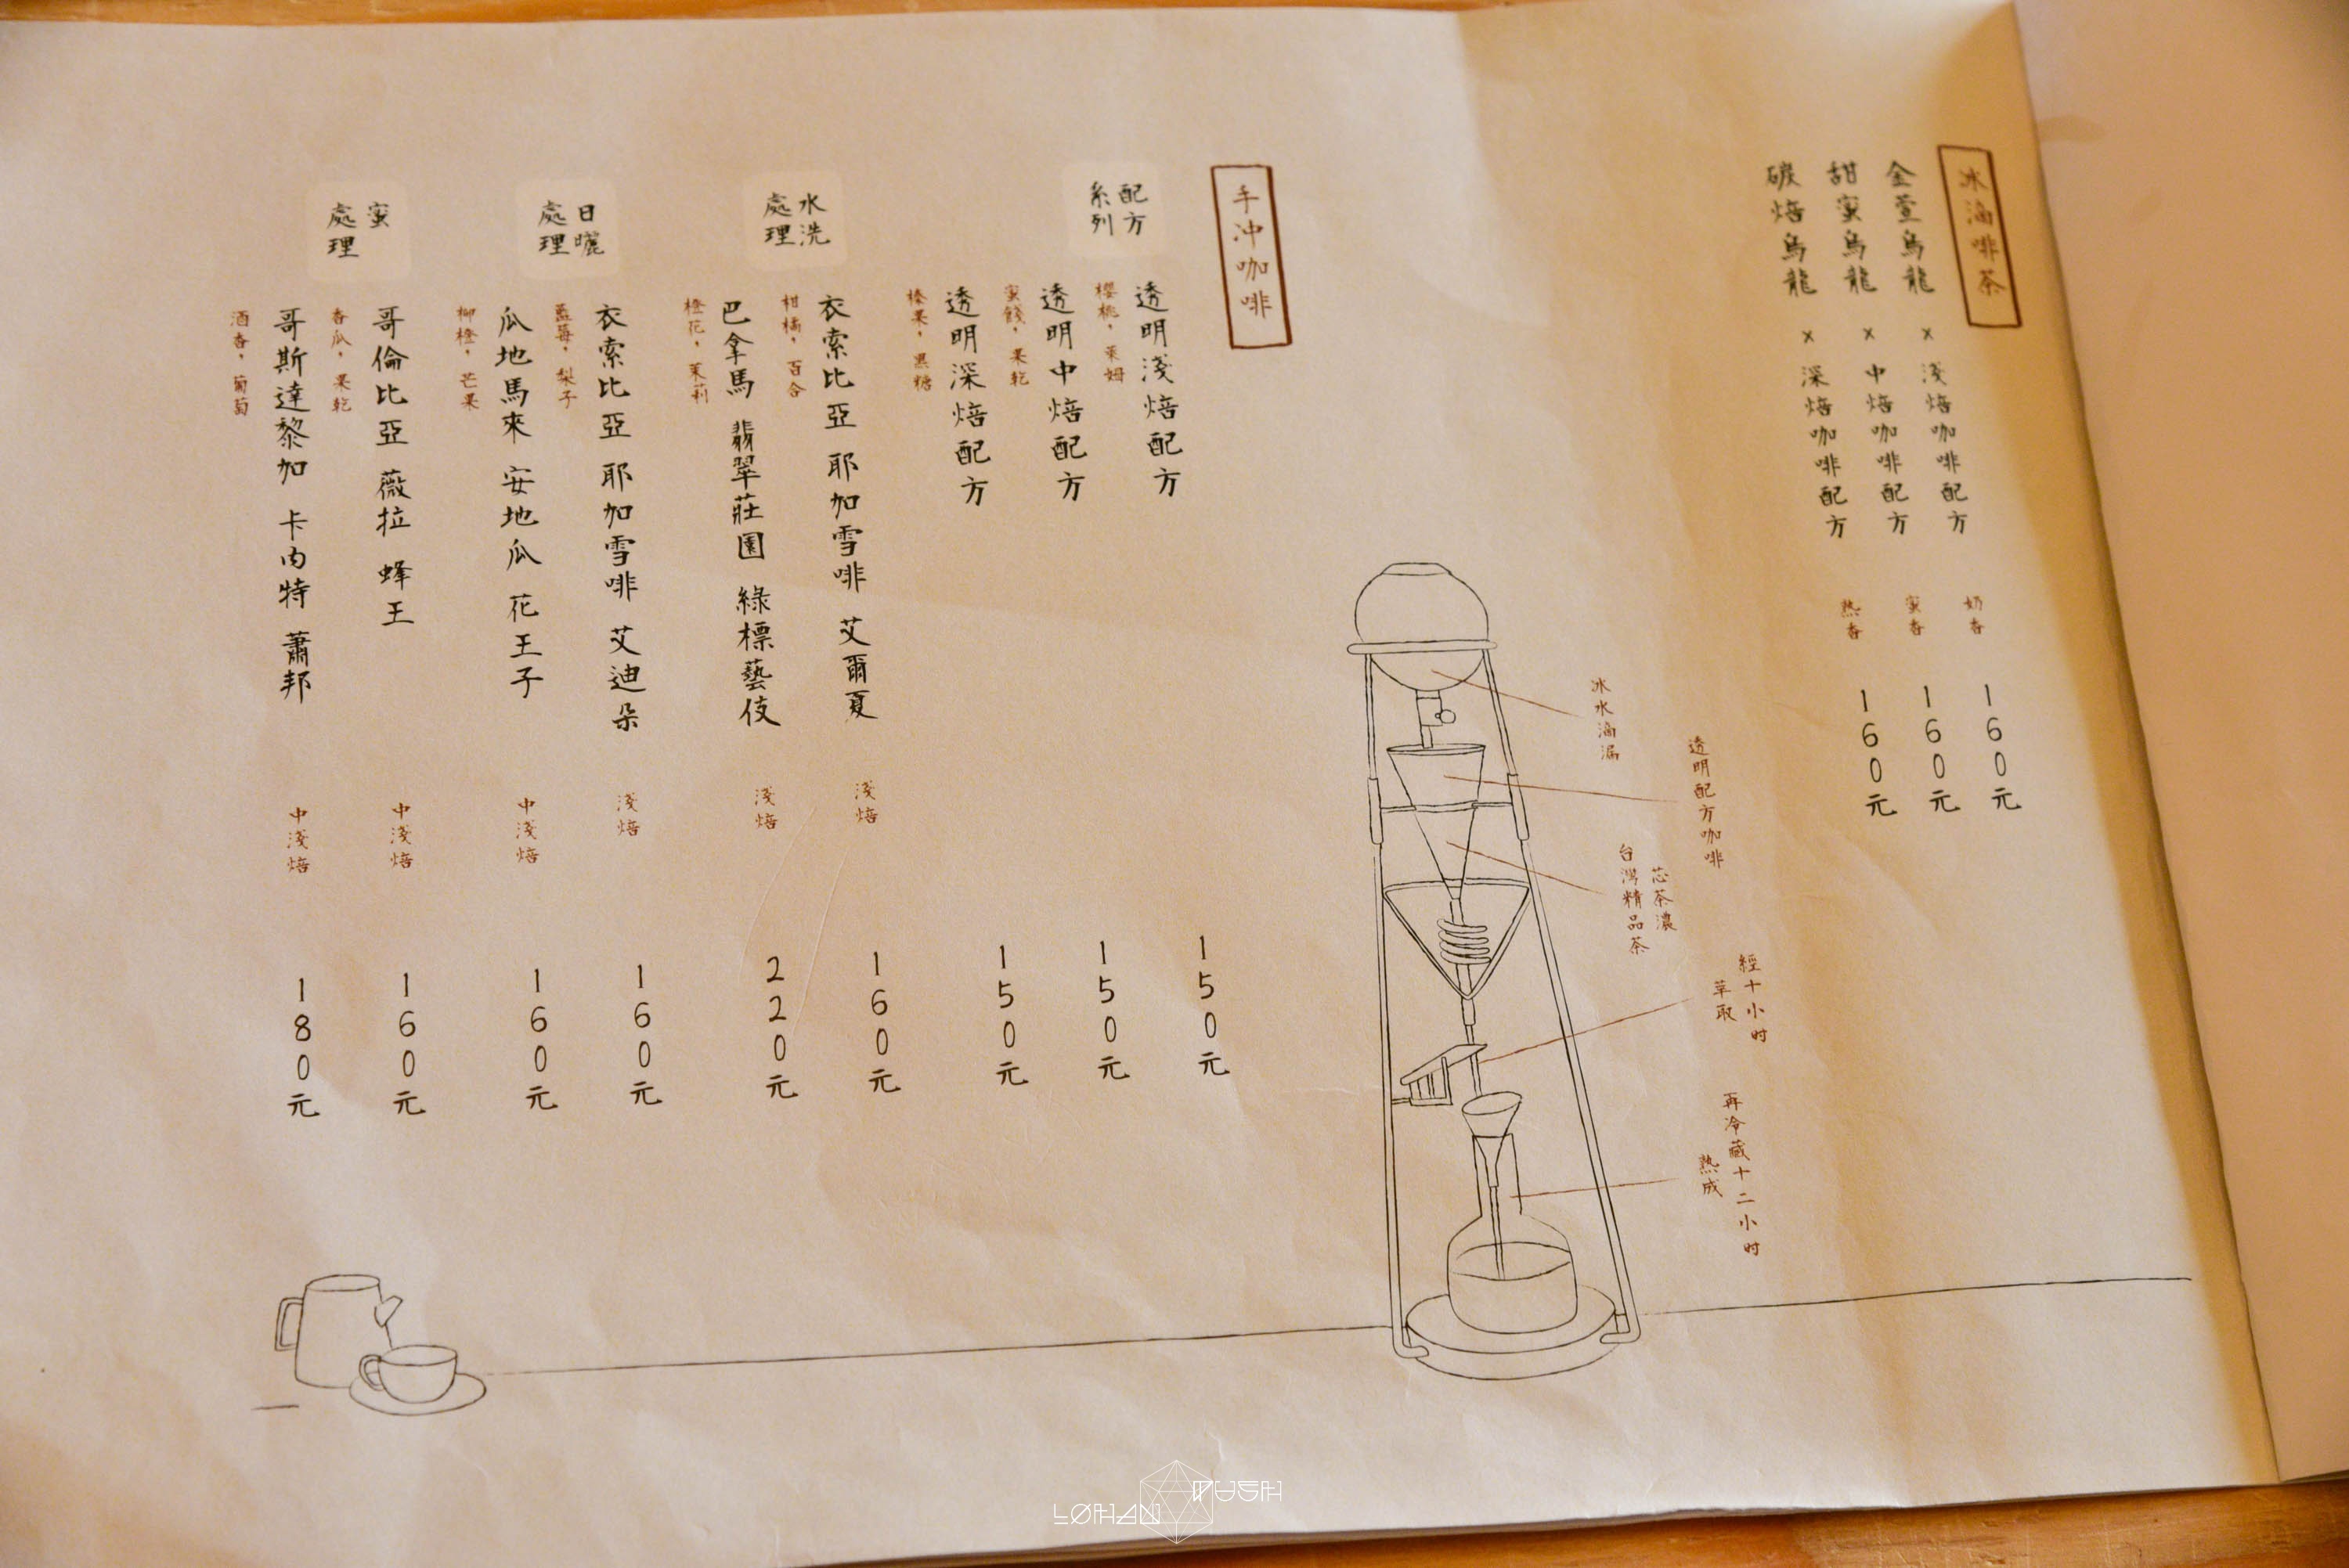 冰滴啡茶
金萱烏龍 × 淺焙咖啡配方 奶香 160元
甜蜜烏龍 × 中焙咖啡配方 蜜香 160元
碳焙烏龍 × 深焙咖啡配方 熟香 160元
冰水滴漏
透明配方咖啡
芯茶濃
台灣精品茶
經十小时
萃取
再冷藏十二小时
熟成
手沖咖啡
配方
系列
透明淺焙配方 150元
櫻桃，萊姆
透明中焙配方 150元
蜜餞，果乾
透明深焙配方 150元
榛果，黑糖
水洗
處理
衣索比亞 耶加雪啡 艾爾夏 淺焙 160元
柑橘，百合
巴拿馬 翡翠莊園 綠標藝伎 淺焙 220元
橙花，茉莉
日曬
處理
衣索比亞 耶加雪啡 艾迪朵 淺焙 160元
藍莓，梨子
瓜地馬來 安地瓜 花王子 中淺焙 160元
柳橙，芒果
蜜
處理
哥倫比亞 薇拉 蜂王 中淺焙 160元
香瓜，果乾
哥斯達黎加 卡內特 蕭邦 中淺焙 180元
酒香，葡萄
LOHAN TUSH